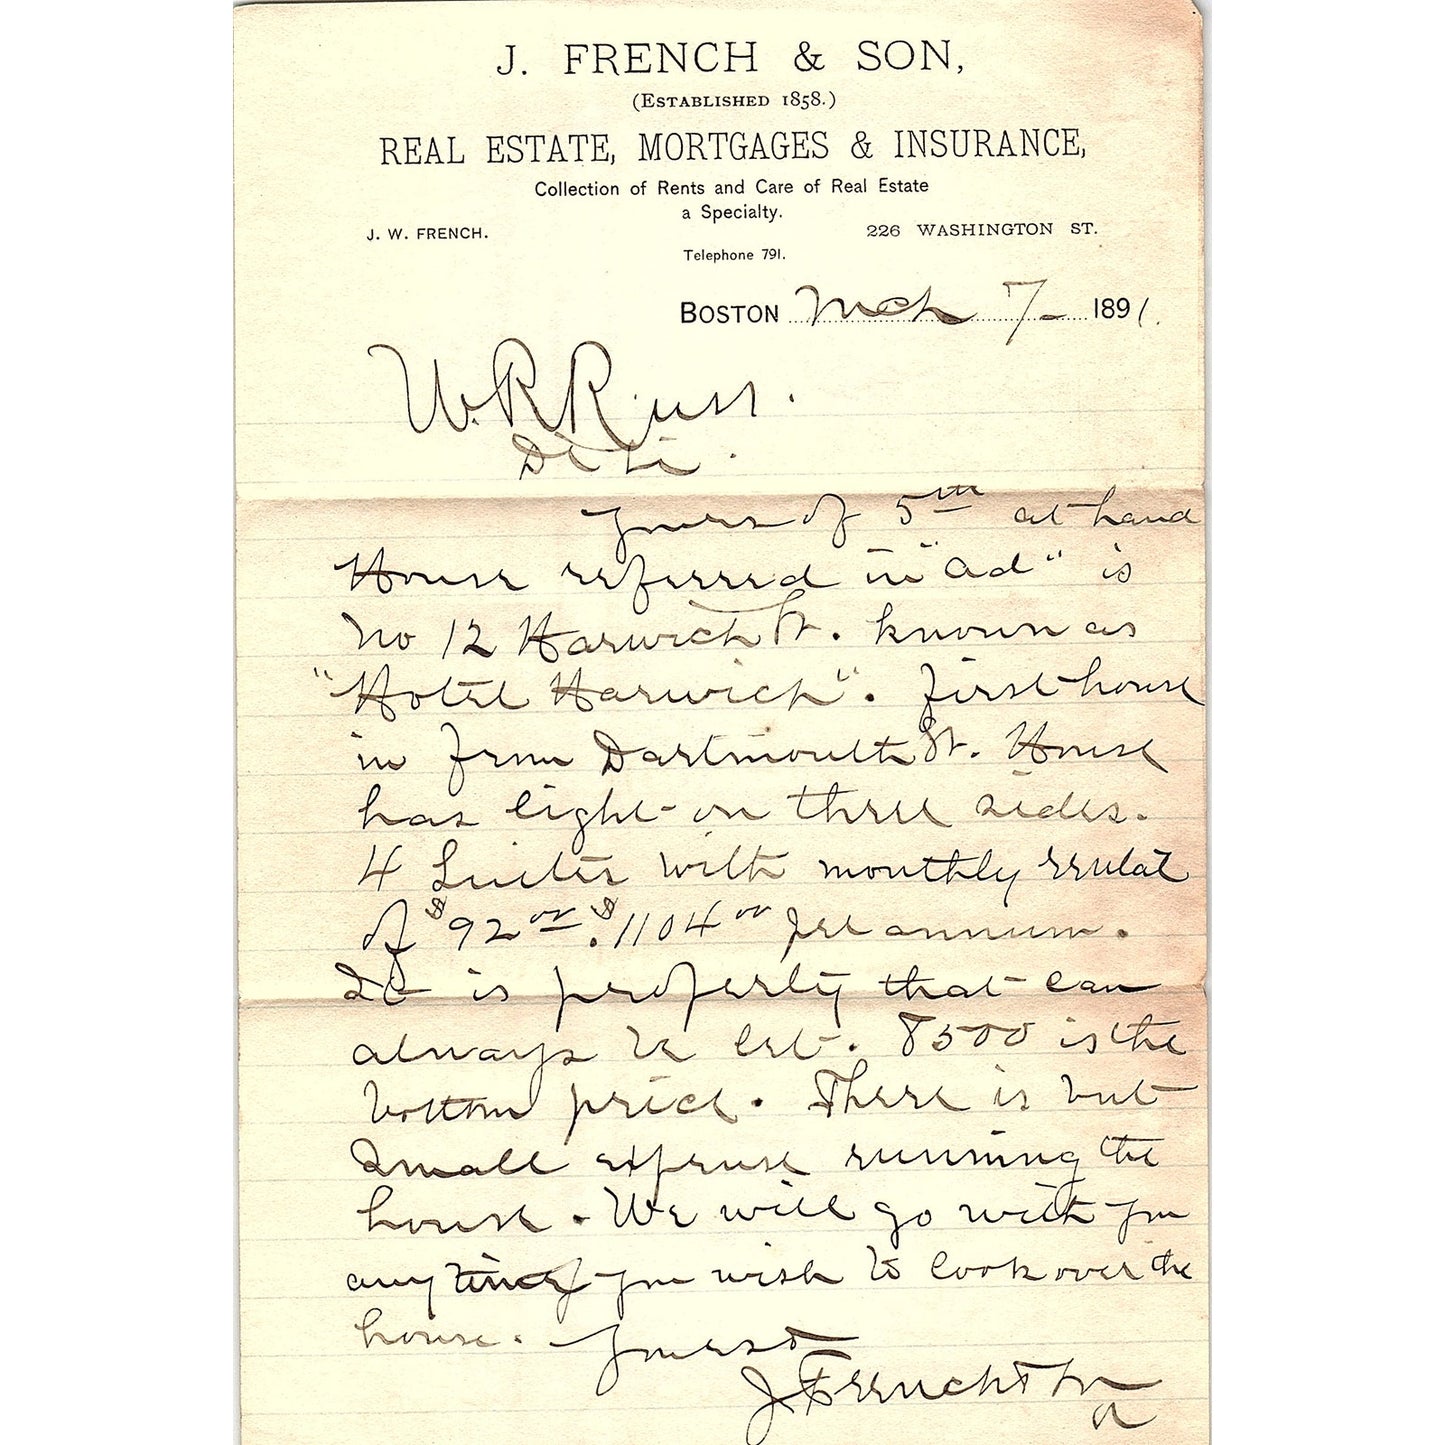 J. FRENCH & SON,
(ESTABLISHED 1858.)
REAL ESTATE, MORTGAGES & INSURANCE,
Collection of Rents and Care of Real Estate
a Specialty.
J. W. FRENCH. 226 WASHINGTON ST.
Telephone 791.
BOSTON Mch 7 - 1891.
W. R. Russ.
Yours of 5th at hand
House referred in "ad" is
No 12 Harwich St. known as
"Hotel Harwich". first house
in from Dartmouth St. House
has light on three sides.
4 Suites with monthly rental
of $92 00. $1104 00 per annum.
It is property that can
always be let. 8500 is the
bottom price. There is but
Small expense running the
house. We will go with you
any time if you wish to look over the
house. Yours
J French & Son